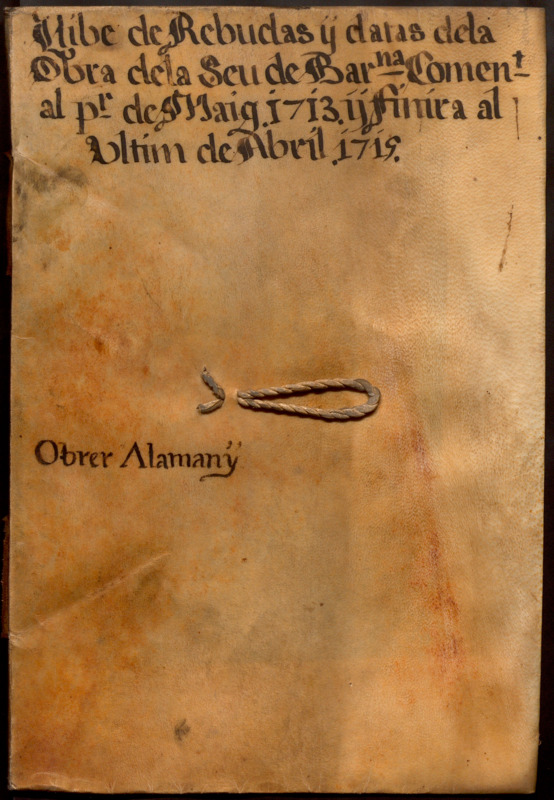 Llibe de Rebudas ÿ datas dela
Obra dela Seu de Barⁿᵃ Comenᵗ
al pʳ de Maig. 1713. ÿ Finira al
Ultim de Abril .1715.
Obrer Alamanÿ